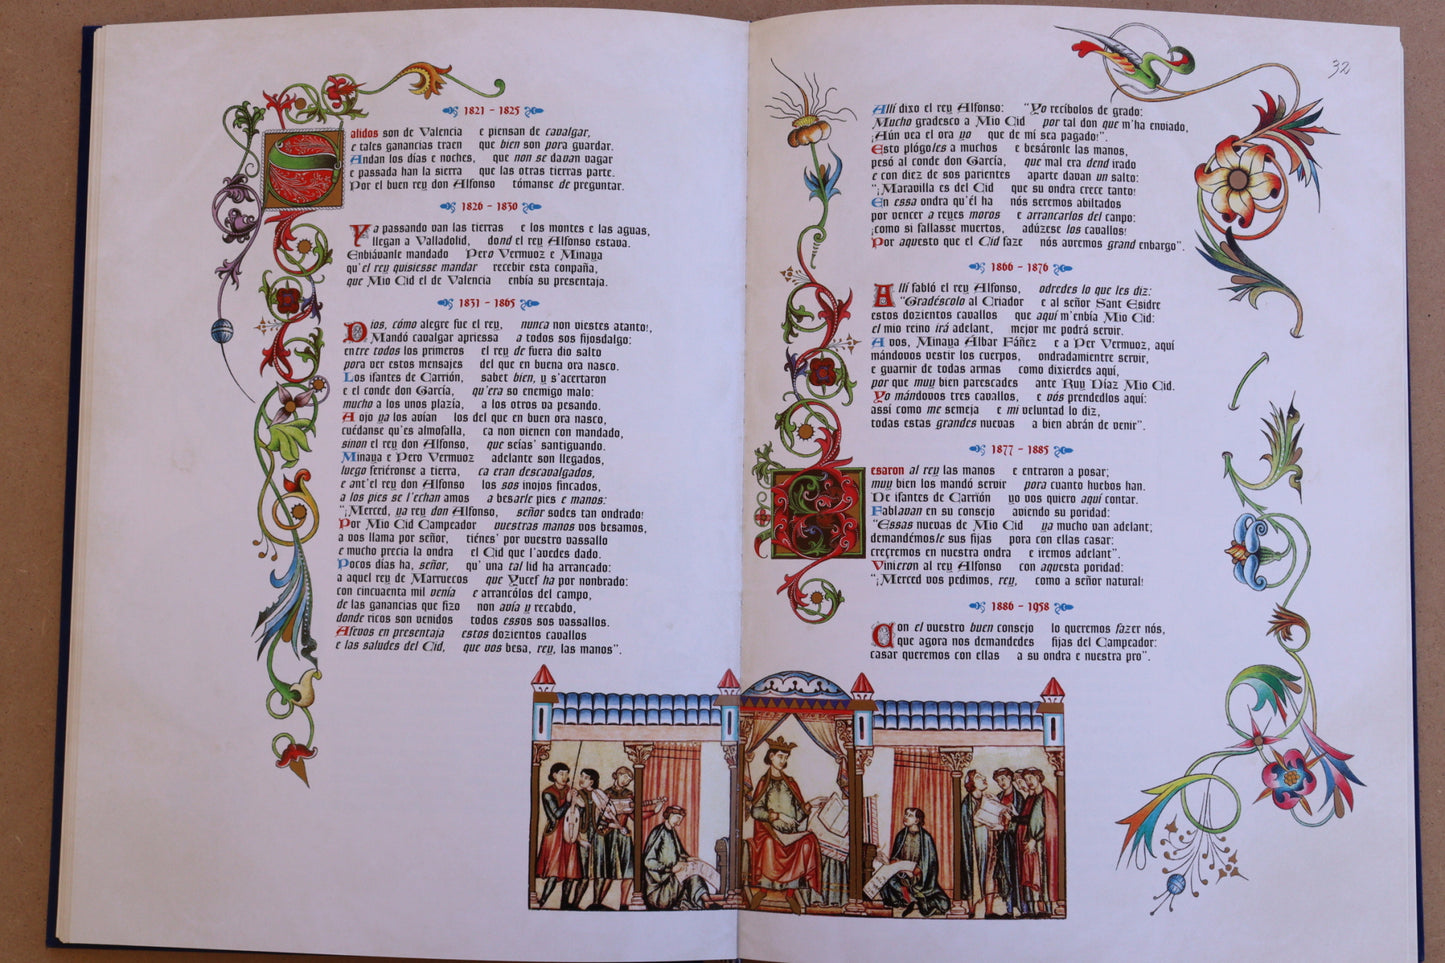 1821 - 1825
Salidos son de Valencia e piensan de cavalgar,
e tales ganancias traen que bien son pora guardar.
Andan los días e noches, que non se davan vagar
e passada han la sierra que las otras tierras parte.
Por el buen rey don Alfonso tómanse de preguntar.
1826 - 1830
Ya passando van las tierras e los montes e las aguas,
llegan a Valladolid, dond el rey Alfonso estava.
Enbiávanle mandado Pero Vermuoz e Minaya
qu'el rey quisiesse mandar recebir esta conpaña,
que Mio Cid el de Valencia enbía su presentaja.
1831 - 1865
Dios, cómo alegre fue el rey, nunca non viestes atanto!,
Mandó cavalgar apriessa a todos sos fijosdalgo:
entre todos los primeros el rey de fuera dio salto
pora ver estos mensajes del que en buena ora nasco.
Los ifantes de Carrión, sabet bien, y s'acertaron
e el conde don García, qu'era so enemigo malo:
mucho a los unos plazía, a los otros va pesando.
A ojo ya los avían los del que en buen ora nasco,
cuédanse qu'es almofalla, ca non vienen con mandado,
sinon el rey don Alfonso, que seías' santiguando.
Minaya e Pero Vermuoz adelante son llegados,
luego feriéronse a tierra, ca eran descavalgados,
e ant'el rey don Alfonso los sos inojos fincados,
a los pies se l'echan amos a besarle pies e manos:
"¡Merced, ya rey don Alfonso, señor sodes tan ondrado!
Por Mio Cid Campeador vuestras manos vos besamos,
a vos llama por señor, tiénes' por vuestro vassallo
e mucho precia la ondra el Cid que l'avedes dado.
Pocos días ha, señor, qu' una tal lid ha arrancado:
a aquel rey de Marruecos que Yucef ha por nonbrado:
con cincuaenta mil venía e arrancólos del campo,
de las ganancias que fizo non avía y recabdo,
donde ricos son venidos todos essos sos vassallos.
Afevos en presentaja estos dozientos cavallos
e las saludes del Cid, que vos besa, rey, las manos".
32
Allí dixo el rey Alfonso: "Yo recíbolos de grado:
Mucho gradesco a Mio Cid por tal don que m'ha enviado,
¡Aún vea el ora yo que de mí sea pagado!".
Esto plógoles a muchos e besáronle las manos,
pesó al conde don García, que mal era dend irado
e con diez de sos parientes aparte davan un salto:
"¡Maravilla es del Cid que su ondra crece tanto!
En essa ondra qu'él ha nós seremos abiltados
por vencer a reyes moros e arrancarlos del canpo:
¡como si fallasse muertos, adúzese los cavallos!
Por aquesto que el Cid faze nós avremos grand enbargo".
1866 - 1876
Allí fabló el rey Alfonso, odredes lo que les diz:
"Gradéscolo al Criador e al señor Sant Esidre
estos dozientos cavallos que aquí m'enbía Mio Cid:
el mio reino irá adelant, mejor me podrá servir.
A vos, Minaya Álbar Fáñez e a Per Vermuoz, aquí
mándovos vestir los cuerpos, ondradamientre servir,
e guarnir de todas armas como dixierdes aquí,
por que muy bien parescades ante Ruy Díaz Mio Cid.
Yo mándovos tres cavallos, e vós prendedlos aquí:
assí como me semeja e mi veluntad lo diz,
todas estas grandes nuevas a bien abrán de venir".
1877 - 1885
Besaron al rey las manos e entraron a posar;
muy bien los mandó servir pora cuanto huebos han.
De ifantes de Carrión yo vos quiero aquí contar.
Fablavan en su consejo aviendo su poridad:
"Essas nuevas de Mio Cid ya mucho van adelant;
demandémosle sus fijas pora con ellas casar:
creçremos en nuestra ondra e iremos adelant".
Vinieron al rey Alfonso con aquesta poridad:
"¡Merced vos pedimos, rey, como a señor natural!
1886 - 1958
Con el vuestro buen consejo lo queremos fazer nós,
que agora nos demandedes fijas del Campeador:
casar queremos con ellas a su ondra e nuestra pro".